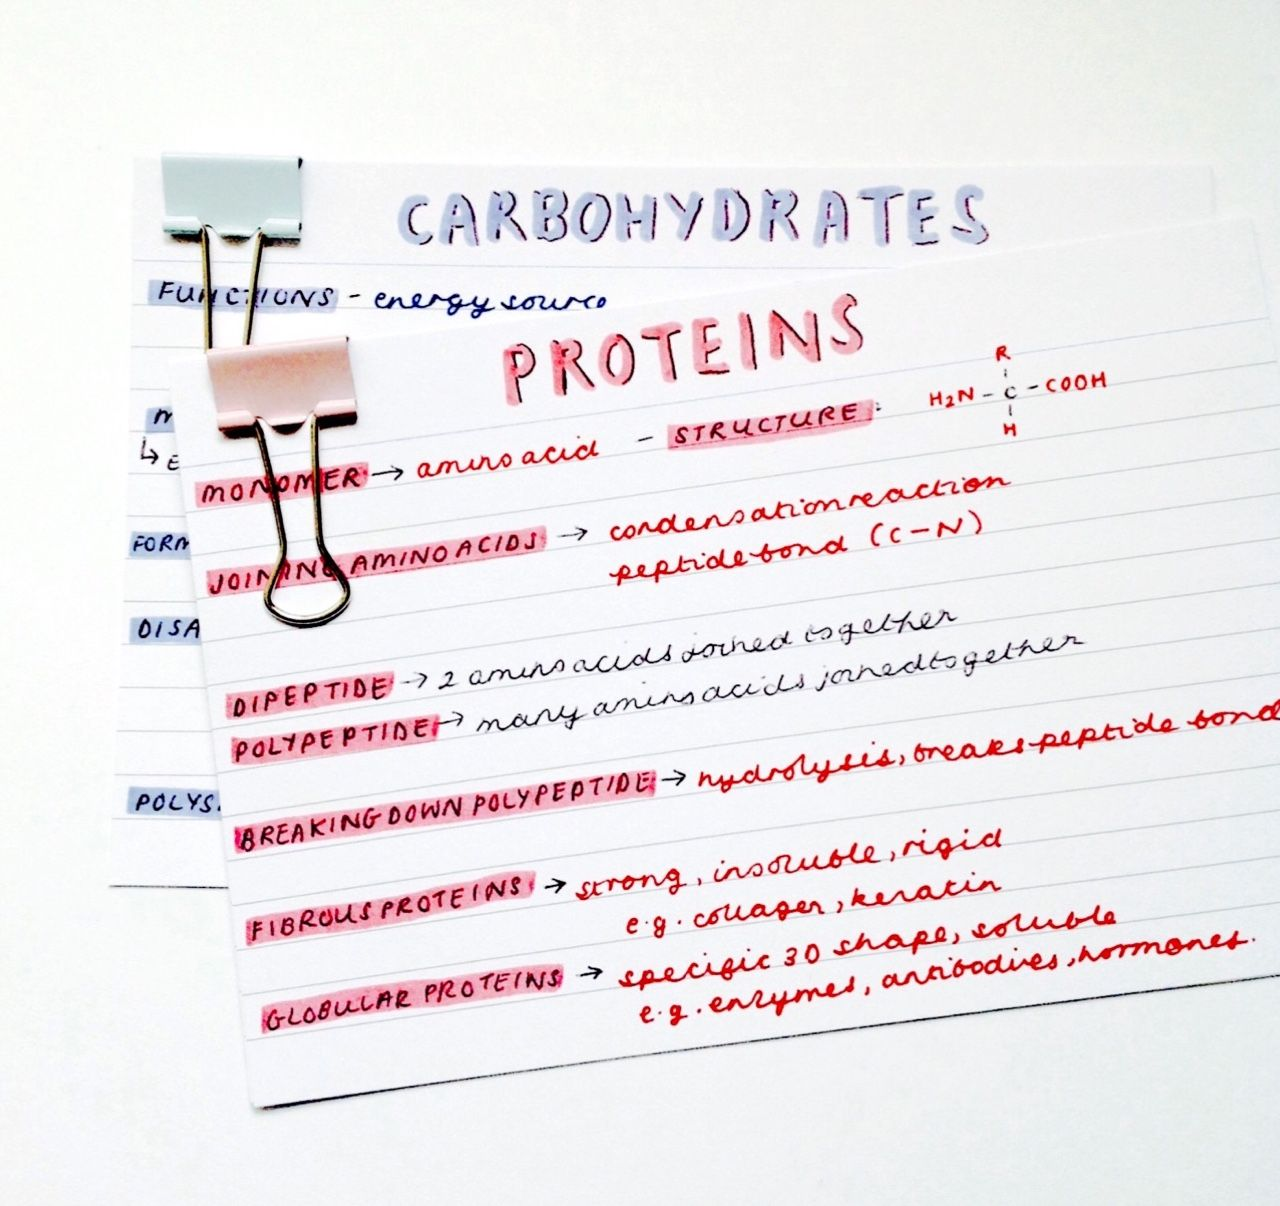 CARBOHYDRATES
FUNCTIONS - energy source
M
↳ E
FORM
DISA
POLYS
PROTEINS
MONOMER → amino acid - STRUCTURE:
R
H₂N - C - COOH
H
JOINING AMINO ACIDS → condensation reaction
peptide bond (C-N)
DIPEPTIDE → 2 amino acids joined together
POLYPEPTIDE → many amino acids joined together
BREAKING DOWN POLYPEPTIDE → hydrolysis, breaks peptide bond
FIBROUS PROTEINS → strong, insoluble, rigid
e.g. collagen, keratin
GLOBULAR PROTEINS → specific 3D shape, soluble
e.g. enzymes, antibodies, hormones.